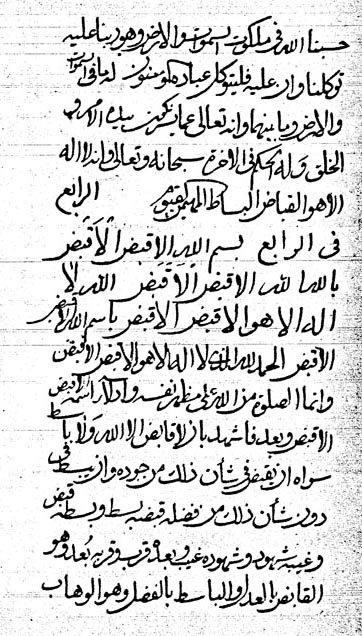 حسبنا الله في ملكوت السموات والارض وهو ربنا عليه
توكلنا وان عليه فليتوكل عباد مؤمنون له ما في السموات
والارض وما بينهما وانه تعالى عما يذكرون بيده الامر و
الخلق وله الحكم في الاخرة سبحانه وتعالى وانه لا اله
الا هو الفياض البساط المهيمن الرابع
في الرابع بسم الله الاقبض الاقبض
بالله الله الاقبض الاقبض الله لا
اله الا هو الاقبض الاقبض باسم الله الاقبض
الاقبض الحمد لله الذي لا اله الا هو الاقبض الاقبض
وانما الصلوة من الله على مظهر نفسه وادلاء اسمه الاقبض
الاقبض وبعد فاشهد بان لا قابض الا الله ولا باسط
سواه ان يقبض في شأن ذلك من جوده وان يبسط في
دون شأن ذلك من فضله قبضه بسط وبسطه قبض
وغيبه شهود وشهوده غيب وبعده قرب وقربه بعد وهو
القابض بالعدل والباسط بالفضل وهو الوهاب